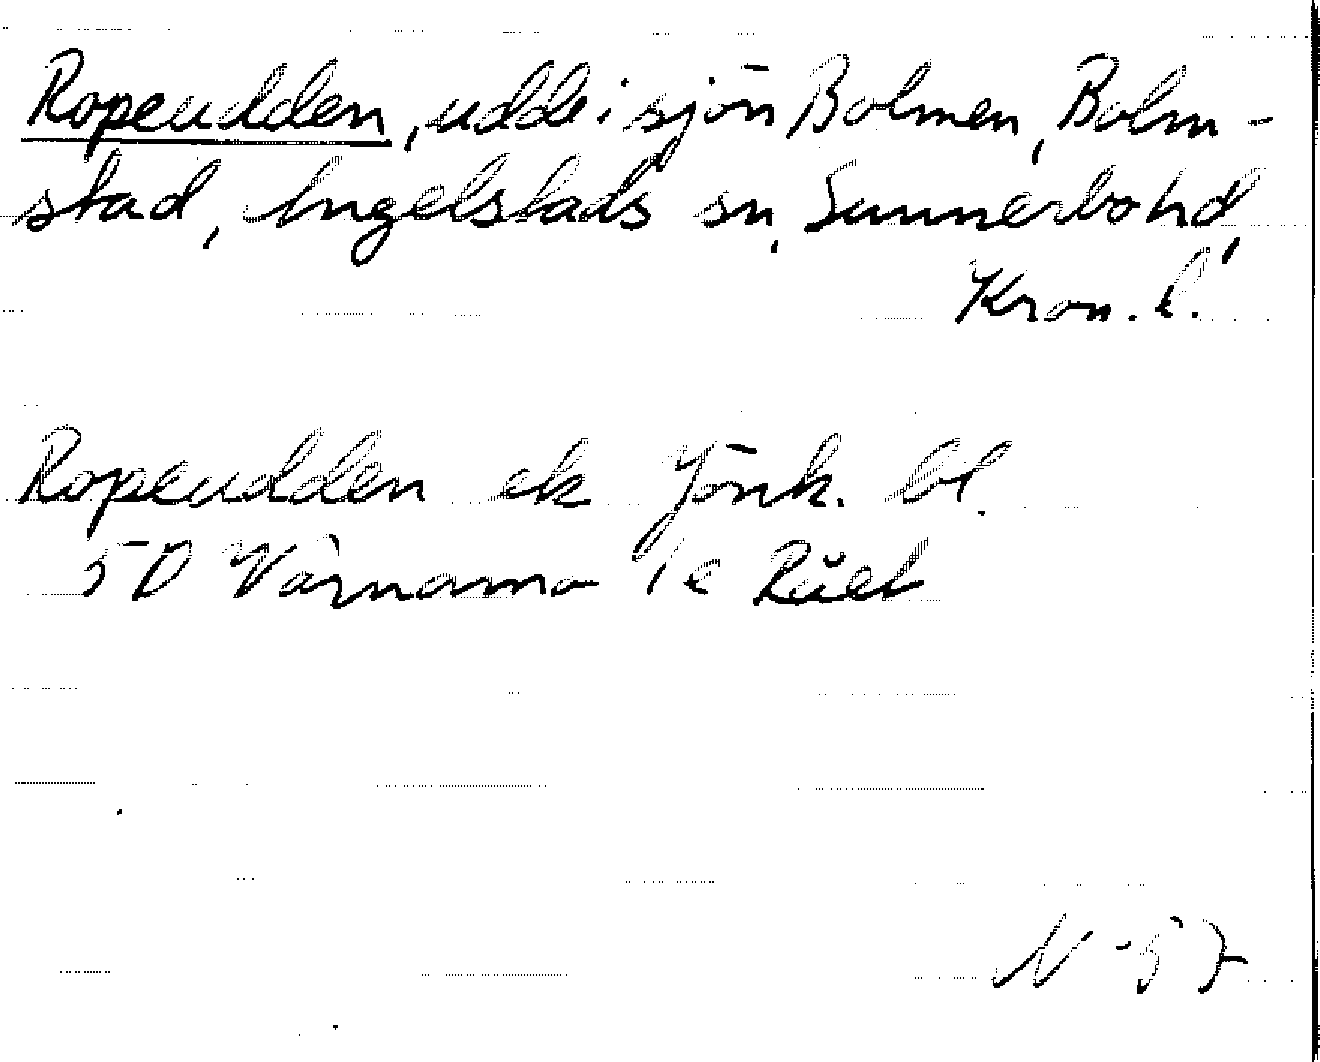 Ropeudden, udde i sjön Bolmen, Bolm-
stad, Angelstads sn, Sunnerbo hd,
Kron. l.
Ropeudden ek Jönk. bl.
5D Värnamo 1e
N -57